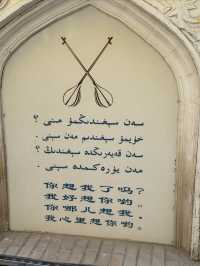 سەن سېغىندىڭمۇ مېنى ؟
خويمۇ سېغىندىم مەن سېنى .
سەن قەيەرىڭدە سېغىندىڭ ؟
مەن يۈرەكىمدە سېنى .
你想我了吗？
我好想你哟
你哪儿想我
我心里想你哟